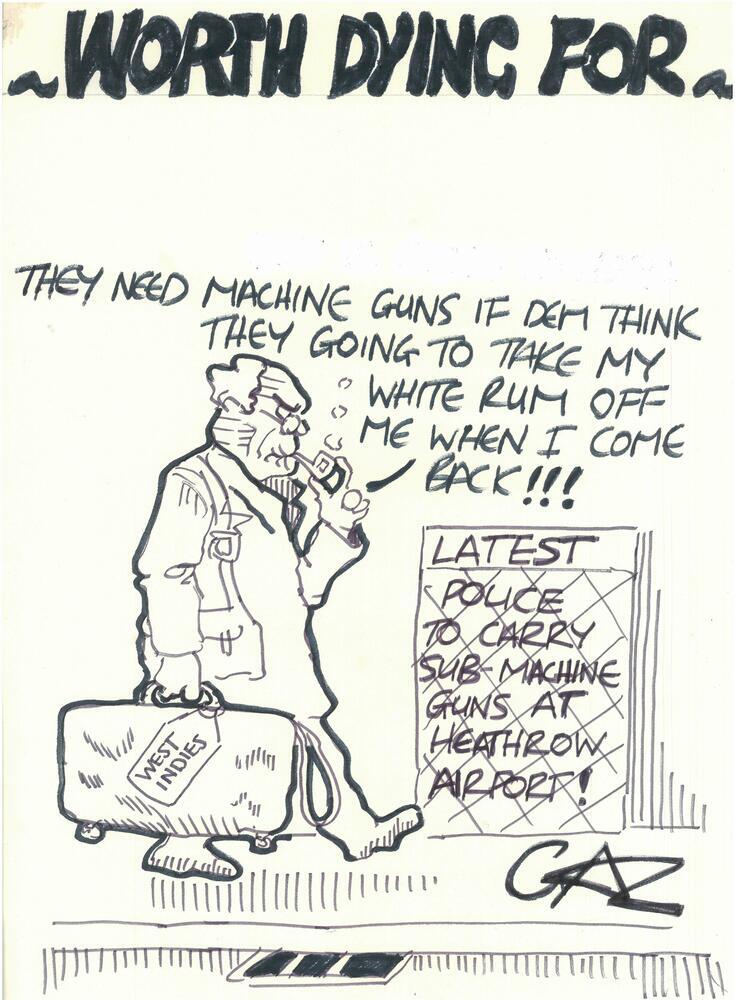 ~WORTH DYING FOR~
THEY NEED MACHINE GUNS IF DEM THINK
THEY GOING TO TAKE MY
WHITE RUM OFF
ME WHEN I COME
BACK!!!
LATEST
POLICE
TO CARRY
SUB-MACHINE
GUNS AT
HEATHROW
AIRPORT!
WEST
INDIES
GAZ